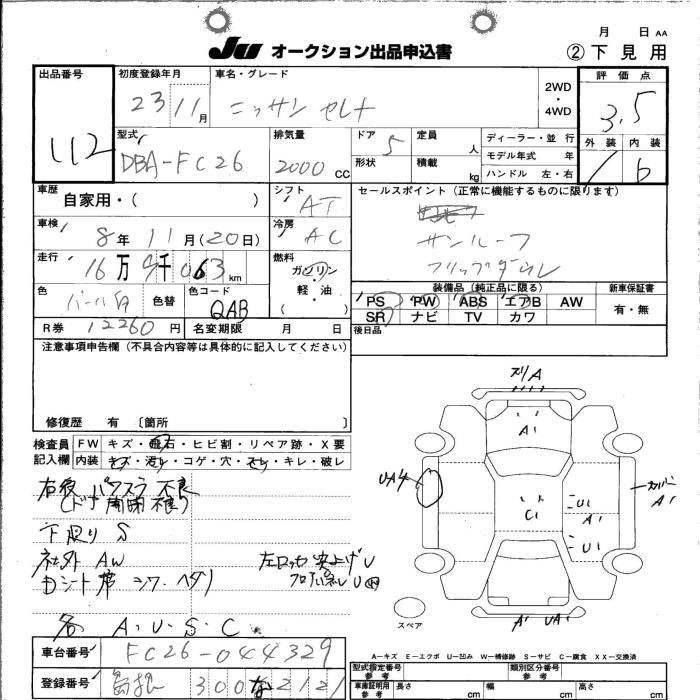 月 日 AA
JU オークション出品申込書 ②下見用
出品番号 初度登録年月 車名・グレード 2WD・4WD 評価点
112 23 11月 ニッサン セレナ 3.5
型式 排気量 ドア 定員 人 ディーラー・並行 外装 内装
DBA-FC26 2000 CC 5 形状 積載 kg モデル年式 年 b
ハンドル 左・右
車歴 シフト セールスポイント(正常に機能するものに限ります)
自家用・( ) AT
車検 冷房 サンルーフ
8年 11月(20日) AC フリップダウン
走行 燃料
16万9千063km ガソリン・軽・油 ( )
装備品(純正品に限る) 新車保証書
色 パール白 色替 色コード QAB PS PW ABS エアB AW 有・無
SR ナビ TV カワ
R券 12260円 名変期限 月 日 後日品
注意事項申告欄(不具合内容等は具体的に記入してください)
修復歴 有 〔箇所 〕
検査員記入欄 FW キズ・飛石・ヒビ割・リペア跡・X要
内装 キズ・汚れ・コゲ・穴・スレ・キレ・破レ
ズリA
A1
UA4
C1
U1
A1
U1
A1
A1 UA1
右後 パワスラ不良
(ドア 開閉不良)
下廻り S
社外 AW 左ロッカ 突上げU
Dシート席 シワ・ヘタリ フロアパネルU
各 A・U・S・C
スペア
A-キズ E-エクボ U-凹み W-補修跡 S-サビ C-腐食 XX-交換済
車台番号 FC26-044329
型式指定番号 参考 類別区分番号 参考
登録番号 300 な 2121
車庫証明用 参考 長さ cm 幅 cm 高さ cm